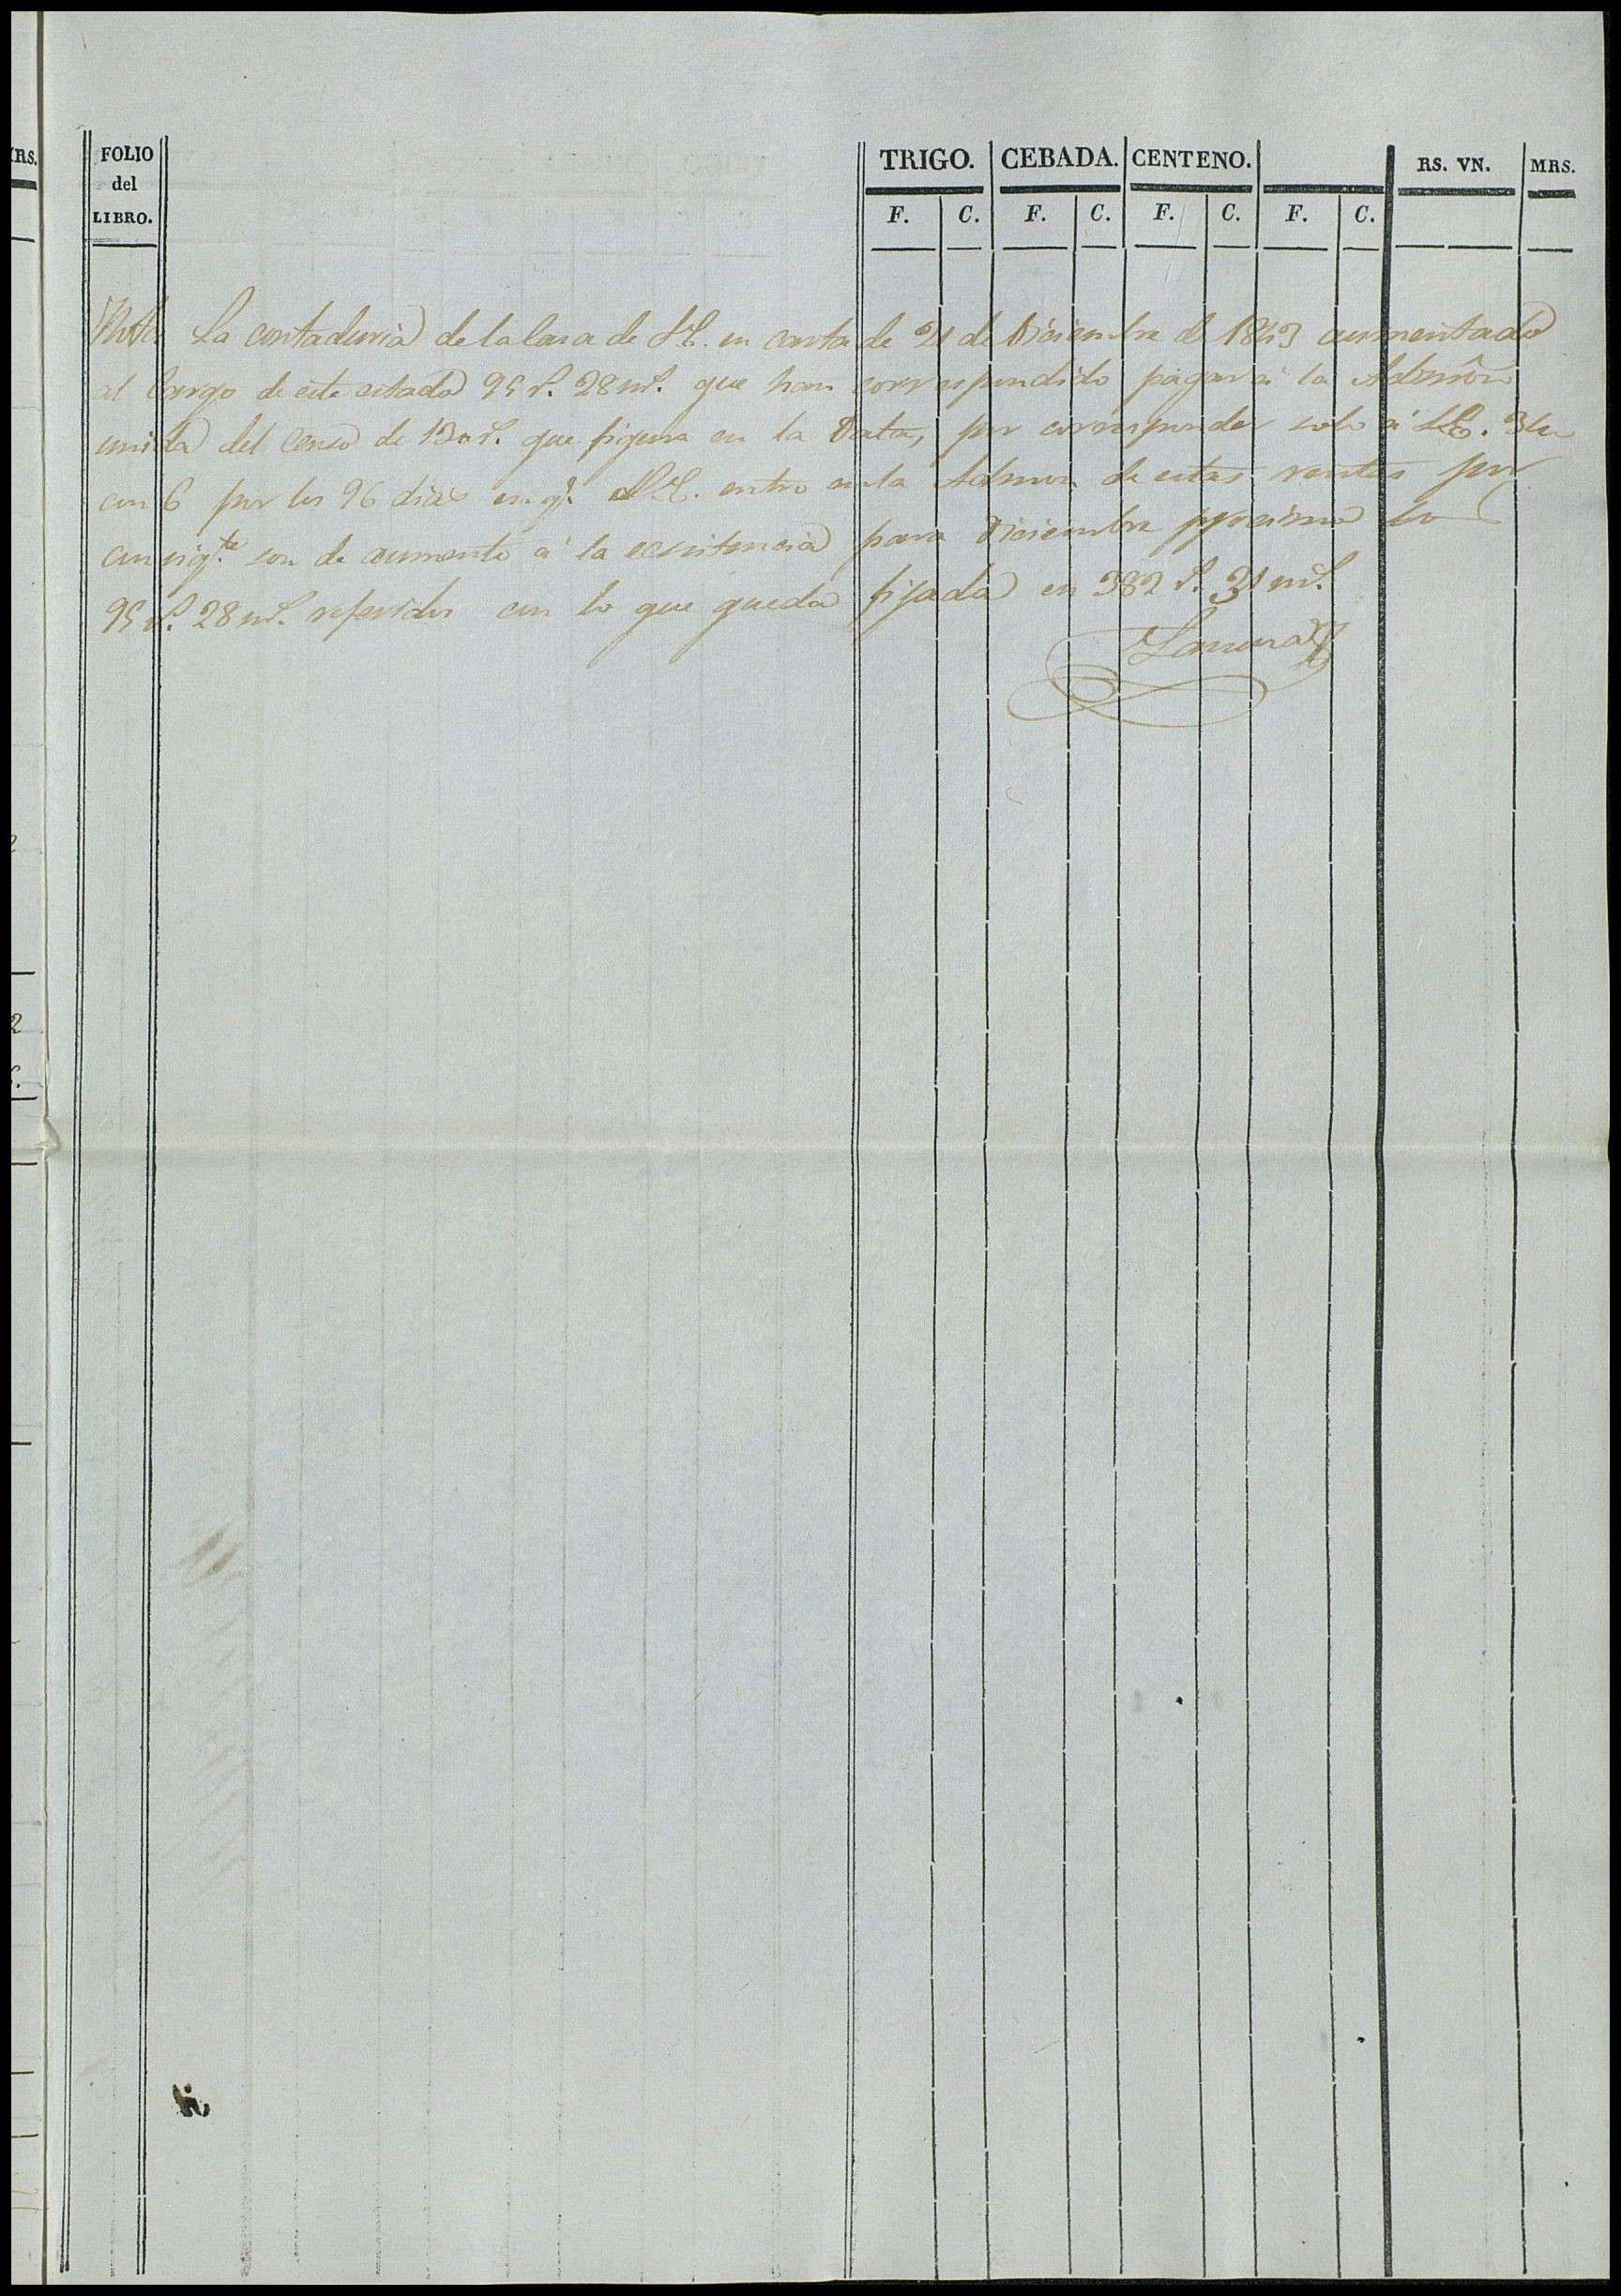 RS.
FOLIO
del
LIBRO.
TRIGO. CEBADA. CENTENO. RS. VN. MRS.
F. C. F. C. F. C. F. C.
Nota La contaduria de la Casa de S.E. en carta de 21 de Diciembre de 1843 aumentado
al Cargo de este estado 95 r.s 28 m.s que han correspondido pagar á la Admôn
unida del Censo de 130 r.s que figura en la Data, por corresponder solo á S.E. 34
con 6 por los 96 dias en q.e S.E. entro en la Admon de estas rentas por
consig.te son de aumento á la ecsistencia para Diciembre procsimo los
95 r.s 28 m.s referidos con lo que queda fijada en 382 r.s 31 m.s